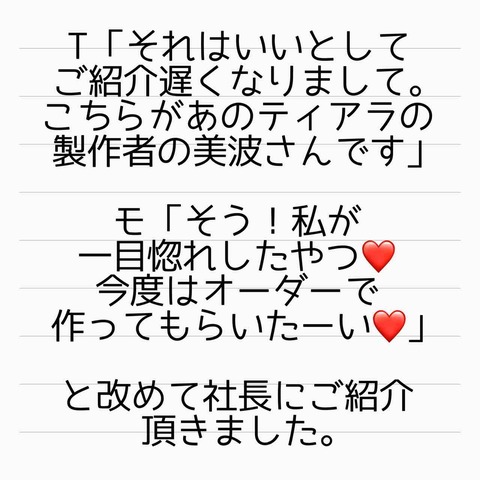 T「それはいいとして
ご紹介遅くなりまして。
こちらがあのティアラの
製作者の美波さんです」
モ「そう！私が
一目惚れしたやつ❤️
今度はオーダーで
作ってもらいたーい❤️」
と改めて社長にご紹介
頂きました。